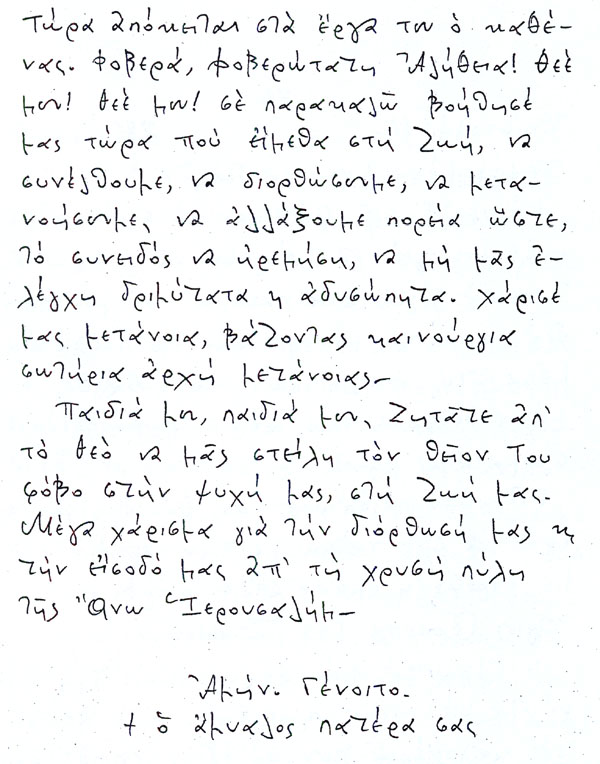 Τώρα ἀπόκειται στὰ ἔργα του ὁ καθέ-
νας. Φοβερά, φοβερώτατη Ἀλήθεια! Θεέ
μου! Θεέ μου! σὲ παρακαλῶ βοήθησέ
μας τώρα ποὺ εἴμεθα στὴ ζωή, νὰ
συνέλθουμε, νὰ διορθώσουμε, νὰ μετα-
νοήσουμε, νὰ ἀλλάξουμε πορεία ὥστε,
τὸ συνειδός νὰ ἠρεμήση, νὰ μὴ μᾶς ἐ-
λέγχη δριμύτατα κ ἀδυσώπητα. Χάρισέ
μας μετάνοια, βάζοντας καινούργια
σωτήρια ἀρχή μετάνοιας–
Παιδιά μου, παιδιά μου, ζητᾶτε ἀπ'
τὸ Θεὸ νὰ μᾶς στείλη τὸν θεῖον Του
φόβο στὴν ψυχή μας, στὴ ζωή μας.
Μέγα χάρισμα γιὰ τὴν διόρθωσή μας κ
τὴν εἴσοδό μας ἀπ' τὴ χρυσὴ πύλη
τῆς Ἄνω Ἱερουσαλήμ–
Ἀμήν. Γένοιτο.
+ ὁ ἄμυαλος πατέρα σας